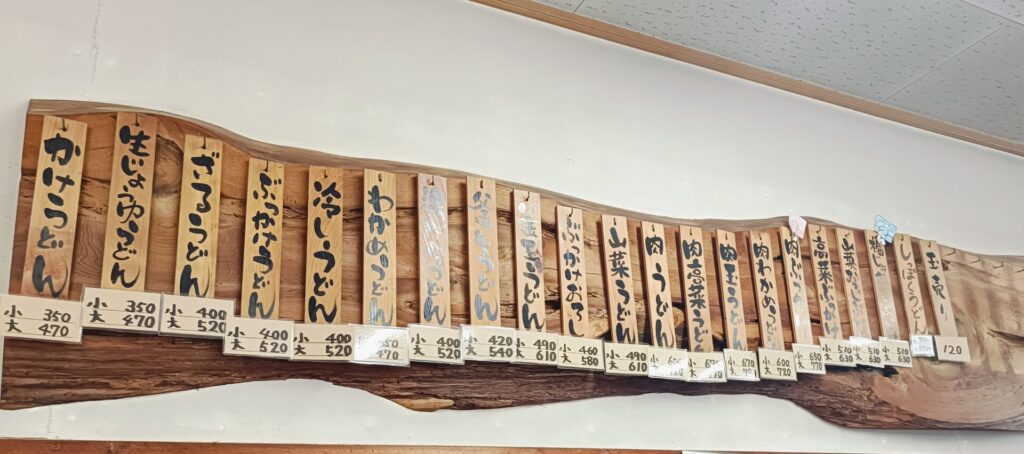 かけうどん
小 350
大 470
生じょうゆうどん
小 350
大 470
ざるうどん
小 400
大 520
ぶっかけうどん
小 400
大 520
冷しうどん
小 400
大 520
わかめうどん
小 350
大 470
うどん
小 400
大 520
うどん
小 420
大 540
玉うどん
小 490
大 610
ぶっかけおろし
小 460
大 580
山菜うどん
小 490
大 610
肉うどん
小 600
肉高菜うどん
小 670
肉玉うどん
小 670
肉わかめうどん
小 600
大 720
肉ぶっかけ
小 650
大 770
高菜ぶっかけ
小 510
大 630
山菜ぶっかけ
小 510
大 630
小 510
大 630
しっぽくうどん
玉売り
120